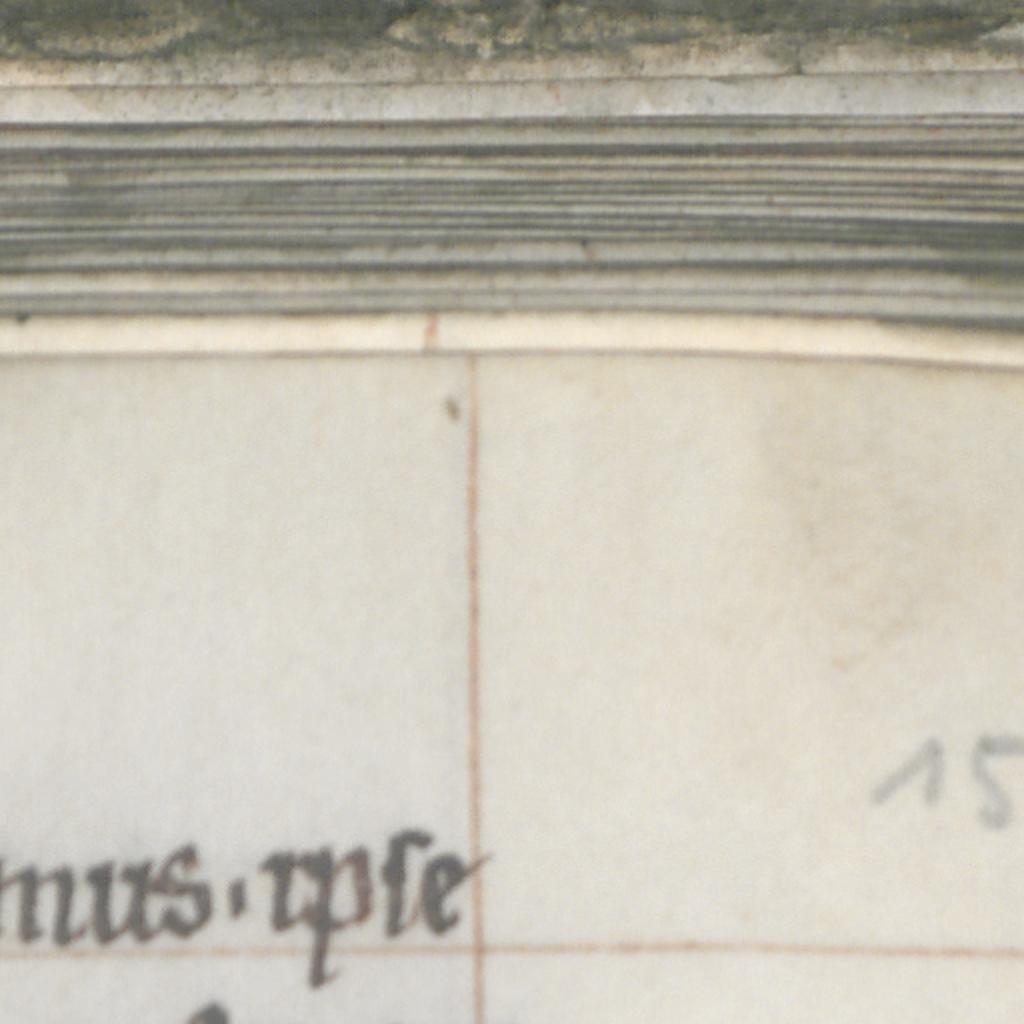 15
mus · ipse